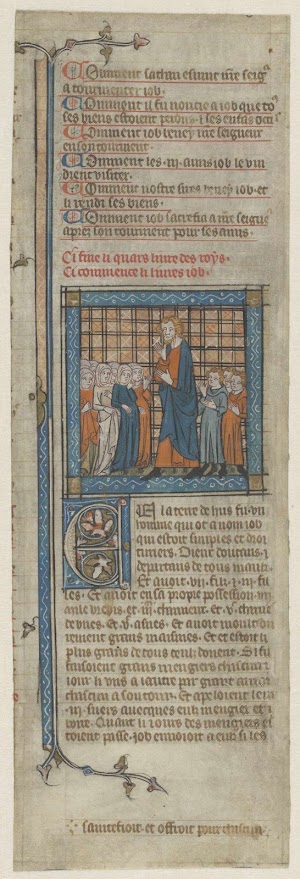 Comment sathan esmut nre seig
a tourmenter iob.
Comment il fu noncie a iob que to
ses biens estoient perdus. z ses enfās occi
Comment iob beney nre seigneur
en son tourment.
Comment les .iii. amis iob le vin
drent visiter.
Comment nostre sires beney iob. et
li rendi ses biens.
Comment iob sacrefia a nre seigne
apres son tourment pour ses amis.
Ci fine li quars liure des roys.
Ci commence li liures iob.
En la terre de hus fu .i.
homme qui ot a nom iob
qui estoit simples et droi
turiers. Dieu doutans. z
departans de tous maus.
Et auoit .vii. fiz. z .iii. fil
les. Et auoit en sa propre possession .vii.
mile brebis. et .iii. chameus. et .v. charues
de bues. Et .v. asnes. Et auoit moult du
rement grans maisnies. Et cest estoit li
plus grans de tous ceulz dorient. Si fil
faisoient grans mengiers chascun i
iour li uns a lautre par grant amor
chascun a son tour. Et apeloient leur
.iii. suers auecques eulz mengier et b
oire. Quant li iours des mengiers es
toient passe. Iob enuoioit a eulz z les
saintefioit. et offroit pour chascun